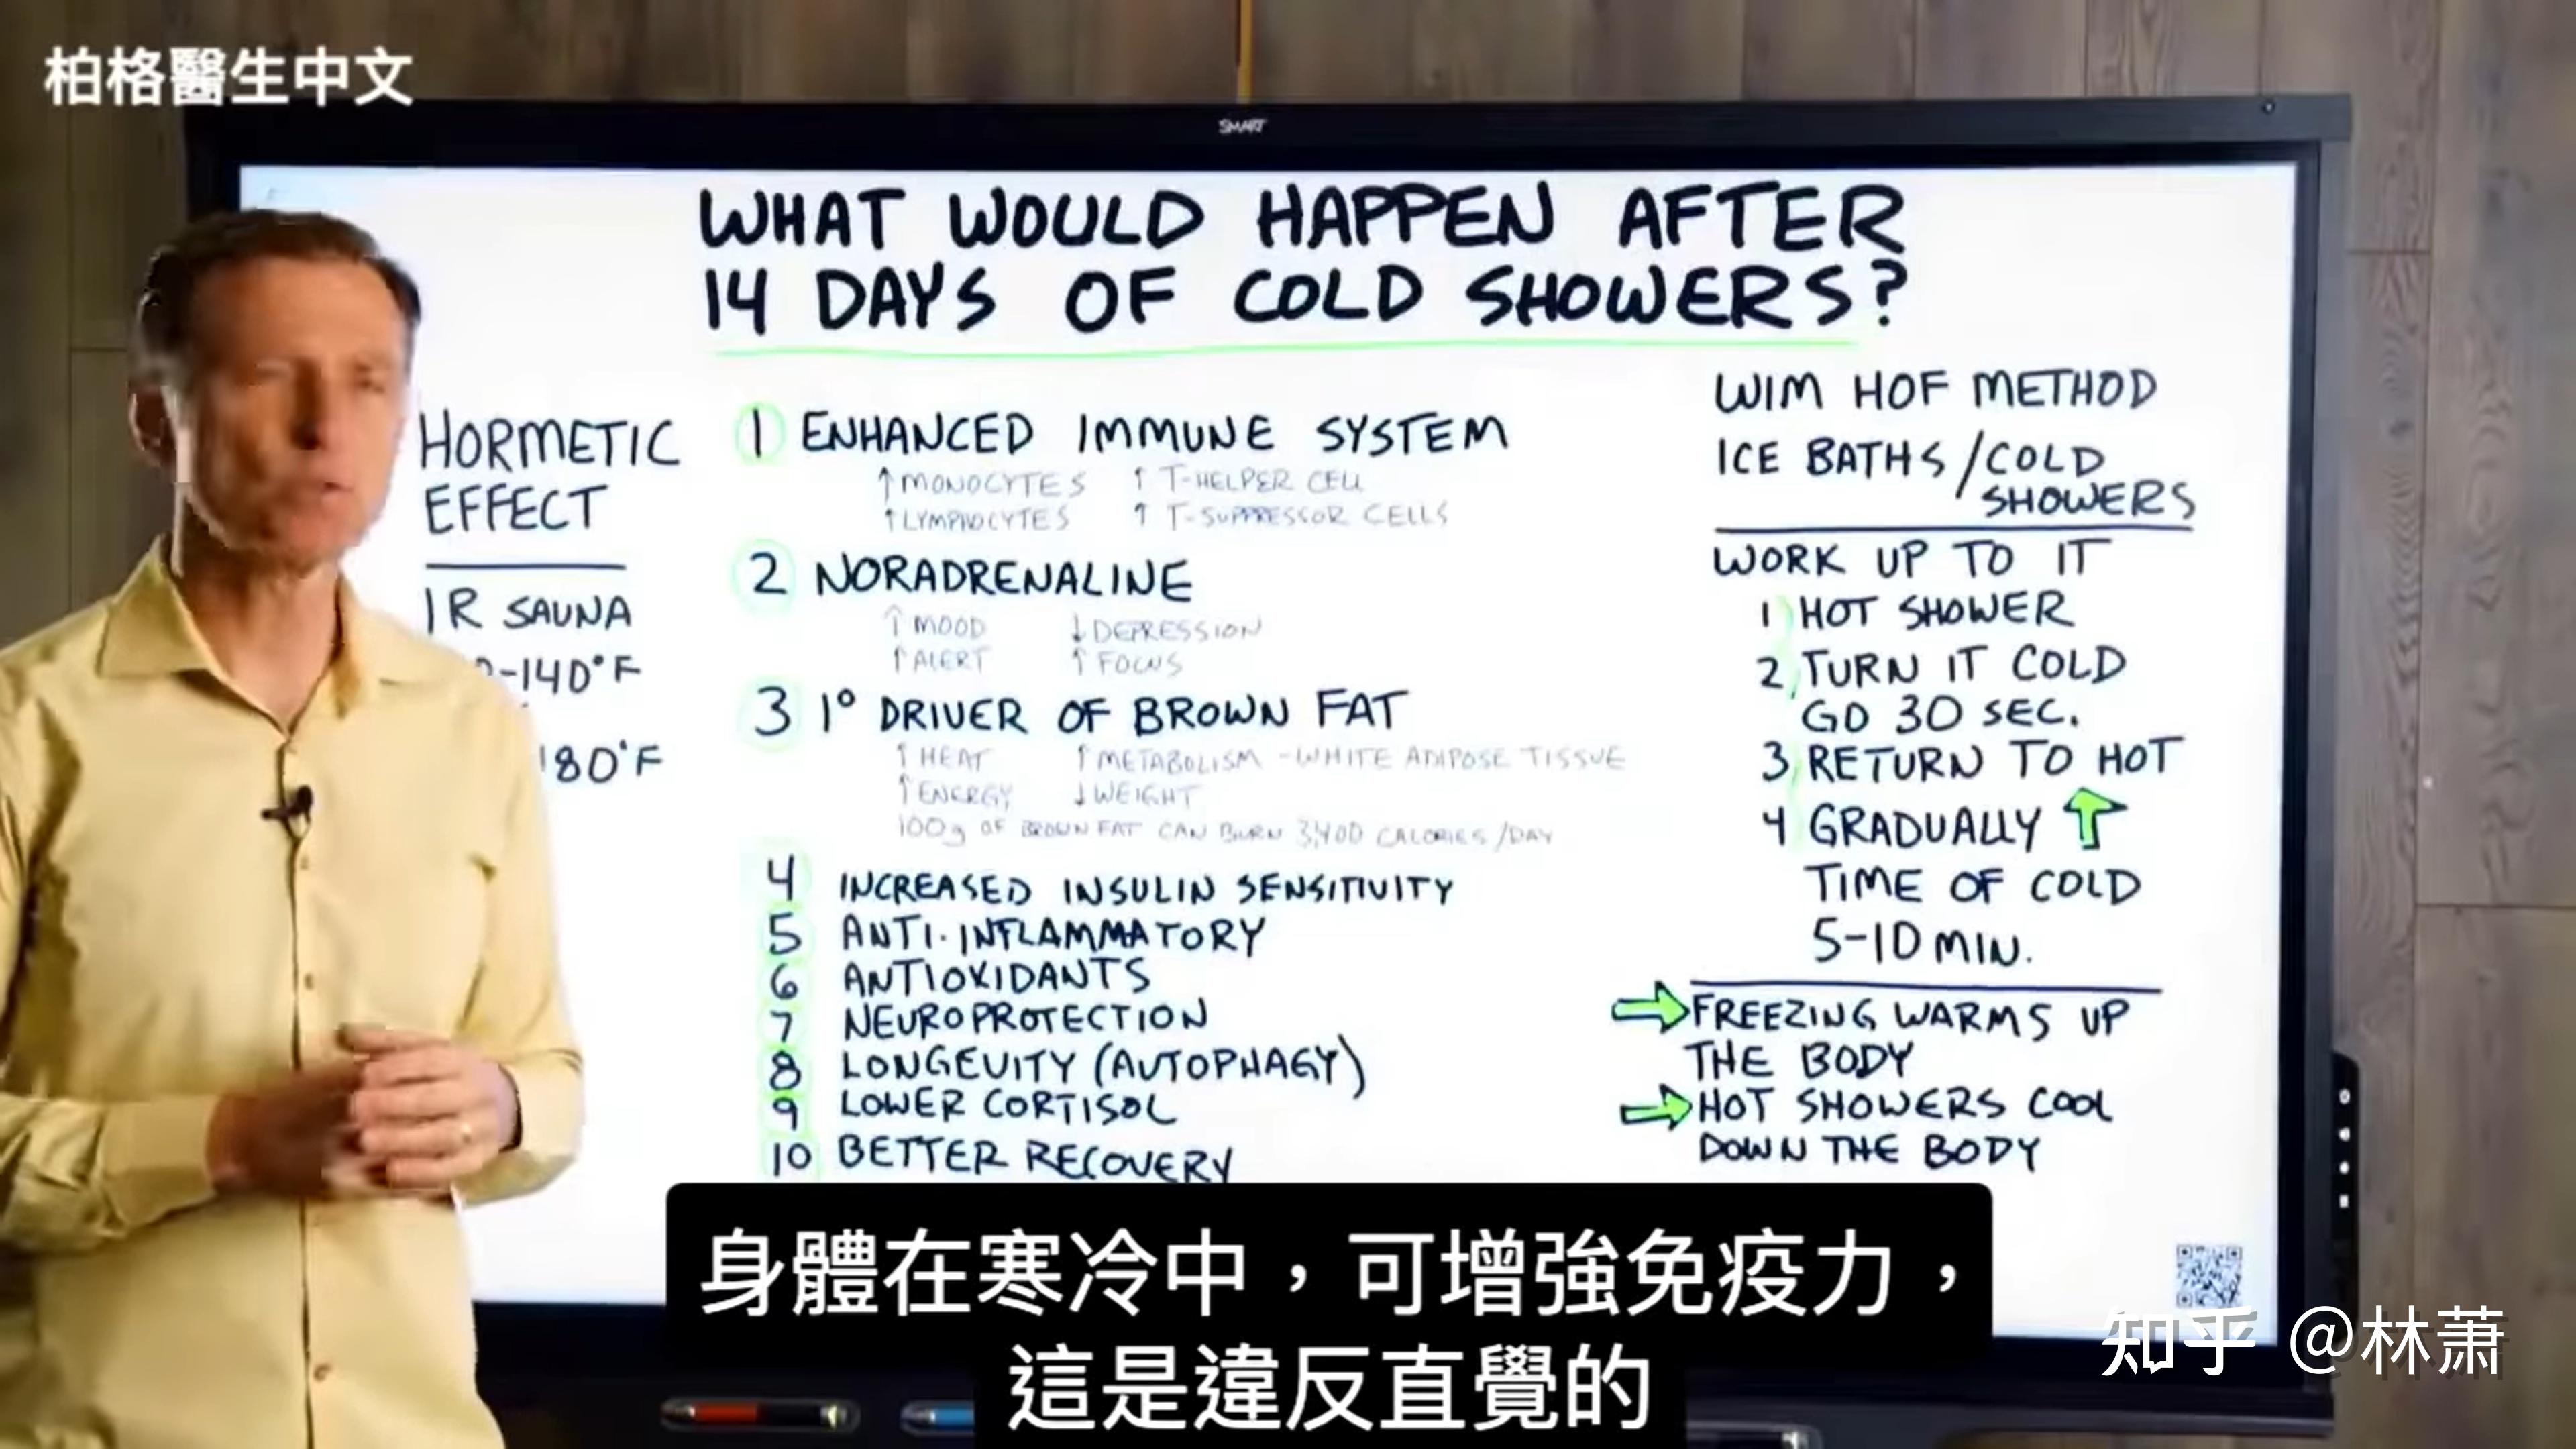 柏格醫生中文
SMART
WHAT WOULD HAPPEN AFTER
14 DAYS OF COLD SHOWERS?
HORMETIC
EFFECT
IR SAUNA
-140°F
180°F
1 ENHANCED IMMUNE SYSTEM
↑ MONOCYTES ↑ T-HELPER CELL
↑ LYMPHOCYTES ↑ T-SUPPRESSOR CELLS
2 NORADRENALINE
↑ MOOD ↓ DEPRESSION
↑ ALERT ↑ FOCUS
3 1° DRIVER OF BROWN FAT
↑ HEAT ↑ METABOLISM - WHITE ADIPOSE TISSUE
↑ ENERGY ↓ WEIGHT
100g OF BROWN FAT CAN BURN 3,400 CALORIES/DAY
4 INCREASED INSULIN SENSITIVITY
5 ANTI-INFLAMMATORY
6 ANTIOXIDANTS
7 NEUROPROTECTION
8 LONGEVITY (AUTOPHAGY)
9 LOWER CORTISOL
10 BETTER RECOVERY
WIM HOF METHOD
ICE BATHS/COLD
SHOWERS
WORK UP TO IT
1 HOT SHOWER
2 TURN IT COLD
GO 30 SEC.
3 RETURN TO HOT
4 GRADUALLY ↑
TIME OF COLD
5-10 MIN.
→ FREEZING WARMS UP
THE BODY
→ HOT SHOWERS COOL
DOWN THE BODY
身體在寒冷中，可增強免疫力，
這是違反直覺的
知乎 @林萧